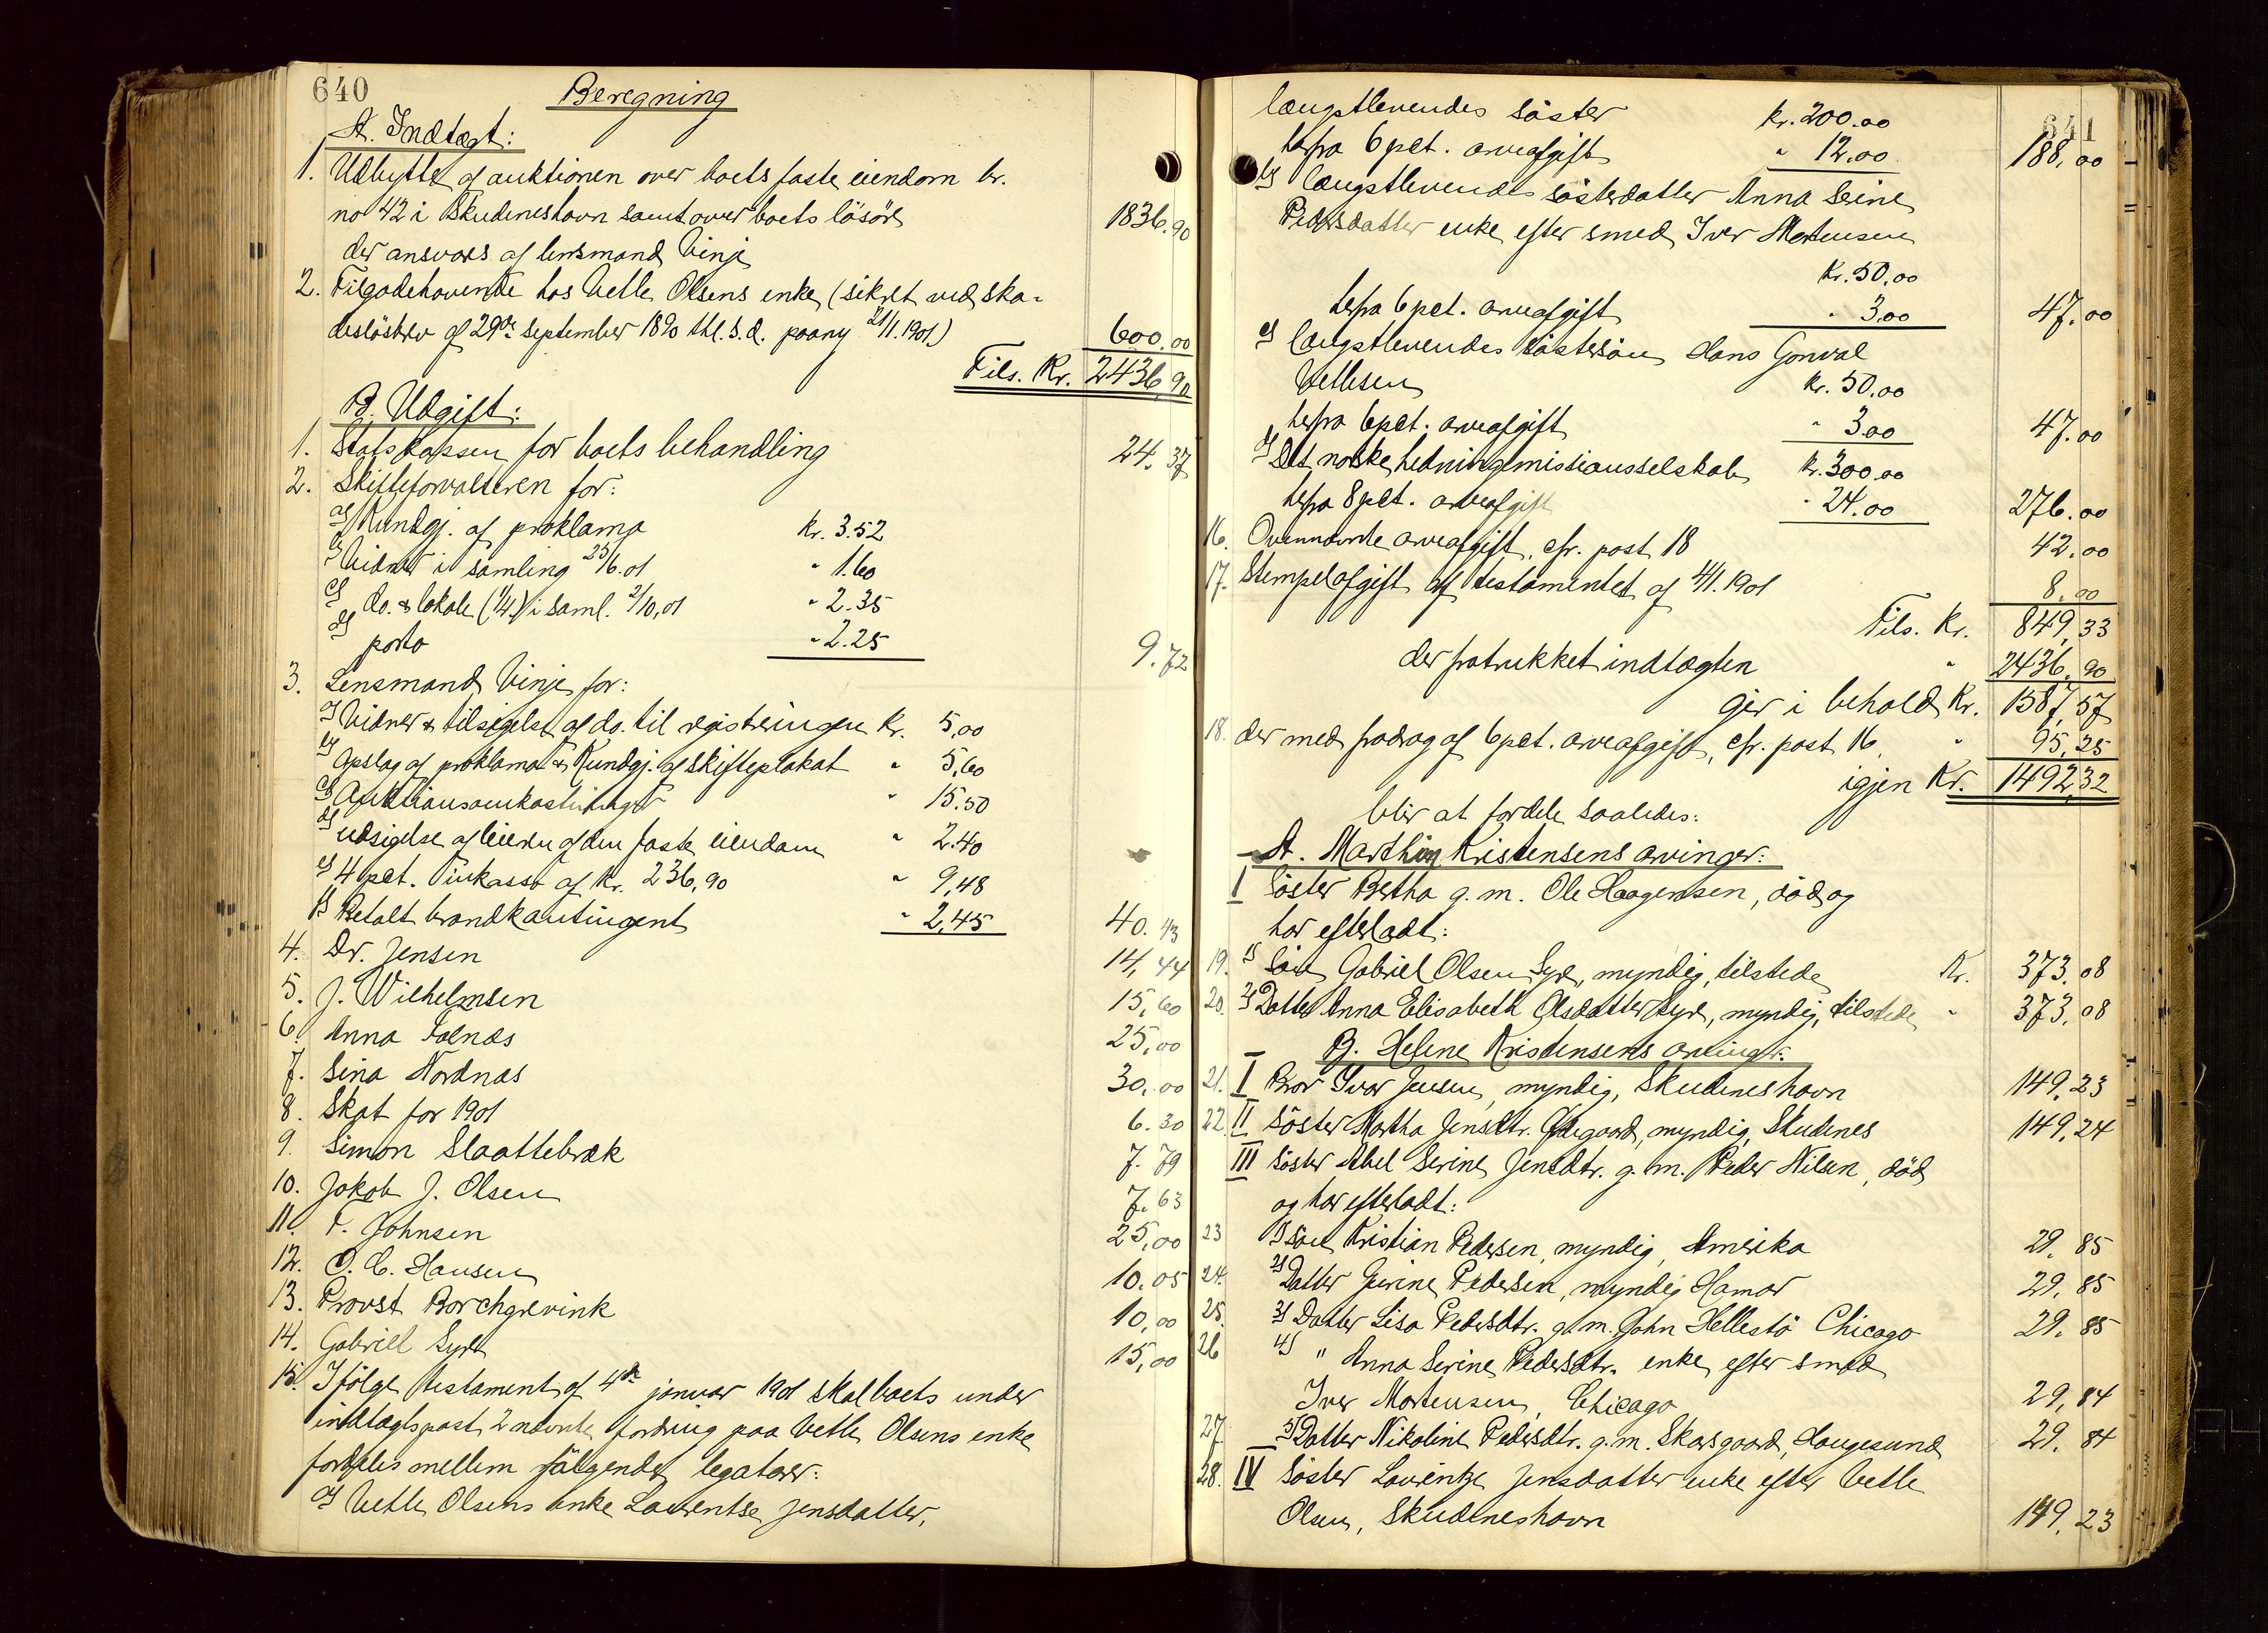 640
Beregning
A. Indtægt:
1. Udbytte af auktionen over boets faste eiendom br.
no 42 i Skudeneshavn samt over boets lösöre 1836.90
der ansvares af lensmand Vinje
2. Tilgodehavende hos Vetle Olsens enke (sikret ved ska-
deslösbrev af 29de september 1890 thl. s. d. paany 21/1.1901.) 600.00
Tils. Kr. 2436,90
B. Udgift:
1. Statskassen for boets behandling 24.37
2. Skifteforvalteren for:
a) Kundgj. af proklama kr. 3.52
b) Vidner i samling 25/6.01 " 1.60
c) do. & lokale (1/4) i saml. 2/10,01 " 2.35
d) porto " 2.25 9.72
3. Lensmand Vinje for:
a) Vidner & tilsigelse af do. til registreringen Kr. 5,00
b) Opslag af proklama & Kundgj. af skifteplakat " 5,60
c) Auktionsomkostninger " 15.50
d) udsigelse af leieren af den faste eiendom " 2.40
e) 4 pct. inkasso af Kr. 236,90 " 9,48
f) Betalt brandkontingent " 2,45 40.43
4. Dr. Jensen 14,44
5. J. Wilhelmsen 15,60
6. Anna Falnæs 25,00
7. Sina Nordnæs 30,00
8. Skat for 1901 6.30
9. Simon Slaattebræk 7.79
10. Jakob J. Olsen 7.63
11. T. Johnsen 25,00
12. O. C. Hansen 10.05
13. Provst Borchgrevink 10,00
14. Gabriel Syre 15,00
15. Ifölge testament af 4de januar 1901 skal boets under
indtægtspost 2 nævnte fordring paa Vetle Olsens enke
fordeles mellem fölgende legatarer:
a) Vetle Olsens enke Laurentse Jensdatter,
641
længstlevendes söster kr. 200.00
herfra 6 pct. arveafgift " 12.00 188,00
b) længstlevendes sösterdatter Anna Serine
Pedersdatter enke efter smed Iver Mortensen
Kr. 50,00
herfra 6 pct. arveafgift " 3,00 47.00
c) længstlevendes söstersön Hans Gonval
Vetlesen Kr. 50.00
herfra 6 pct. arveafgift " 3.00 47.00
d) Det norske hedningemissionsselskab Kr. 300.00
herfra 8 pct. arveafgift " 24.00 276.00
16. Ovennævnte arveafgift, cfr. post 18 42.00
17. Stempelafgift af testamentet af 4/1.1901 8.00
Tils. Kr. 849,33
der fratrukket indtægten " 2436,90
gir i behold Kr. 1587,57
18. der med fradrag af 6 pct. arveafgift, cfr. post 16, " 95,25
igjen Kr. 1492,32
blir at fordele saaledes:
A. Marthin Kristensens arvinger:
I Söster Bertha g. m. Ole Haagensen, död og
har efterladt:
19. 1) Sön Gabriel Olsen Syre, myndig, tilstede Kr. 373.08
20. 2) Datter Anna Elisabeth Olsdatter Syre, myndig, tilstede " 373,08
B. Helene Kristensens arvinger:
21. I Bror Ivar Jensen, myndig, Skudeneshavn 149,23
22. II Söster Martha Jensdtr. Ödegaard, myndig, Skudenes 149,24
III Söster Abel Serine Jensdtr. g. m. Peder Nilsen, död
og har efterladt:
23 1) Sön Kristian Pedersen, myndig, Amerika 29.85
24. 2) Datter Jurine Pedersen, myndig Hamar 29,85
25. 3) Datter Lisa Pedersdtr. g. m. John Hellestö Chicago 29.85
26 4) " Anna Serine Pedersdtr. enke efter smed
Iver Mortensen, Chicago 29,84
27. 5) Datter Nikoline Pedersdtr. g. m. Skarsgaard, Haugesund 29.84
28. IV Söster Laurentze Jensdatter enke efter Vetle
Olsen, Skudeneshavn 149.23